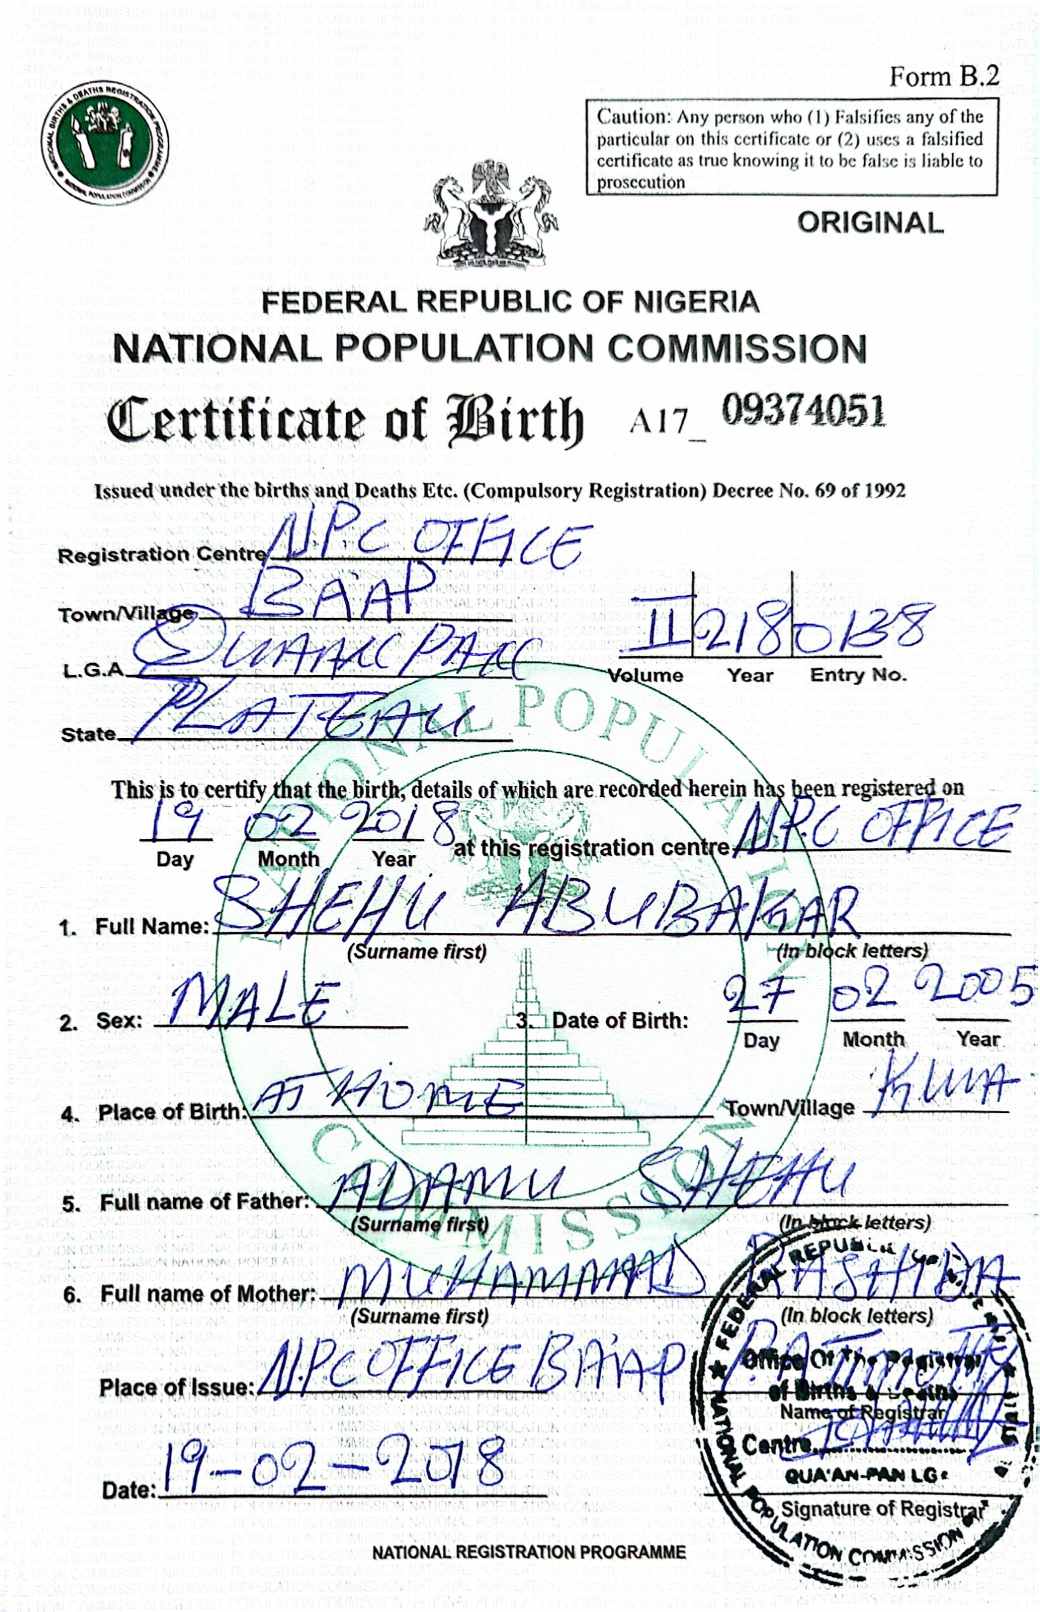 Form B.2
NATIONAL BIRTHS & DEATHS REGISTRATION PROGRAMME
NATIONAL POPULATION COMMISSION
Caution: Any person who (1) Falsifies any of the
particular on this certificate or (2) uses a falsified
certificate as true knowing it to be false is liable to
prosecution
ORIGINAL
FEDERAL REPUBLIC OF NIGERIA
NATIONAL POPULATION COMMISSION
Certificate of Birth A17_ 09374051
Issued under the births and Deaths Etc. (Compulsory Registration) Decree No. 69 of 1992
Registration Centre N.P.C OFFICE
Town/Village BA'AP
L.G.A QUAANPAN
II 218 0138
Volume Year Entry No.
State PLATEAU
NATIONAL POPULATION COMMISSION
This is to certify that the birth, details of which are recorded herein has been registered on
19 02 2018 at this registration centre N.P.C OFFICE
Day Month Year
1. Full Name: SHEHU ABUBAKAR
(Surname first) (In block letters)
2. Sex: MALE 3. Date of Birth: 27 02 2005
Day Month Year
4. Place of Birth: AT HOME Town/Village KWA
5. Full name of Father: ADAMU SHEHU
(Surname first) (In block letters)
6. Full name of Mother: MUHAMMAD RASHIDA
(Surname first) (In block letters)
Place of Issue: N.PC OFFICE BA'AP
Name of Registrar
Date: 19-02-2018
Signature of Registrar
FEDERAL REPUBLIC
Office Of The Registrar
of Births & Deaths
Centre
QUA'AN-PAN LG
NATIONAL POPULATION COMMISSION
NATIONAL REGISTRATION PROGRAMME